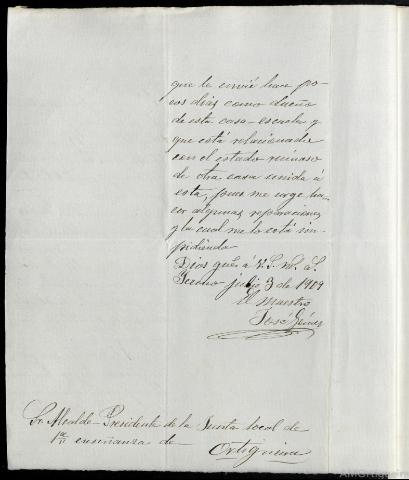 que le envié hace po-
cos dias como dueño
de esta casa-escuela y
que está relacionada
con el estado ruinoso
de otra casa unida á
esta, pues me urge ha-
cer algunas reparaciones
y la cual me lo está im-
pidiendo
Dios gue. á V.S. m. a.
julio 3 de 1909
El Maestro
José
Sr. Alcalde-Presidente de la Junta local de
1ra enseñanza de Ortigueira